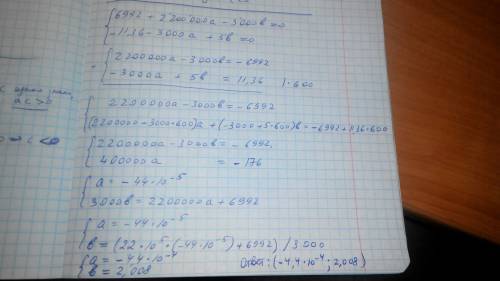 6992 + 2200000a - 3000b = 0
-11,36 - 3000a + 5b = 0
2200000a - 3000b = -6992
-3000a + 5b = 11,36 | · 600
ac > 0
2200000a - 3000b = -6992
(2200000 - 3000·600)a + (-3000 + 5·600)b = -6992 + 11,36·600
c < 0
2200000a - 3000b = -6992,
400000a = -176
a = -44·10⁻⁵
3000b = 2200000a + 6992
a = -44·10⁻⁵
b = (22·10⁵·(-44·10⁻⁵) + 6992) / 3000
a = -4,4·10⁻⁴
b = 2,008
Ответ: (-4,4·10⁻⁴; 2,008)